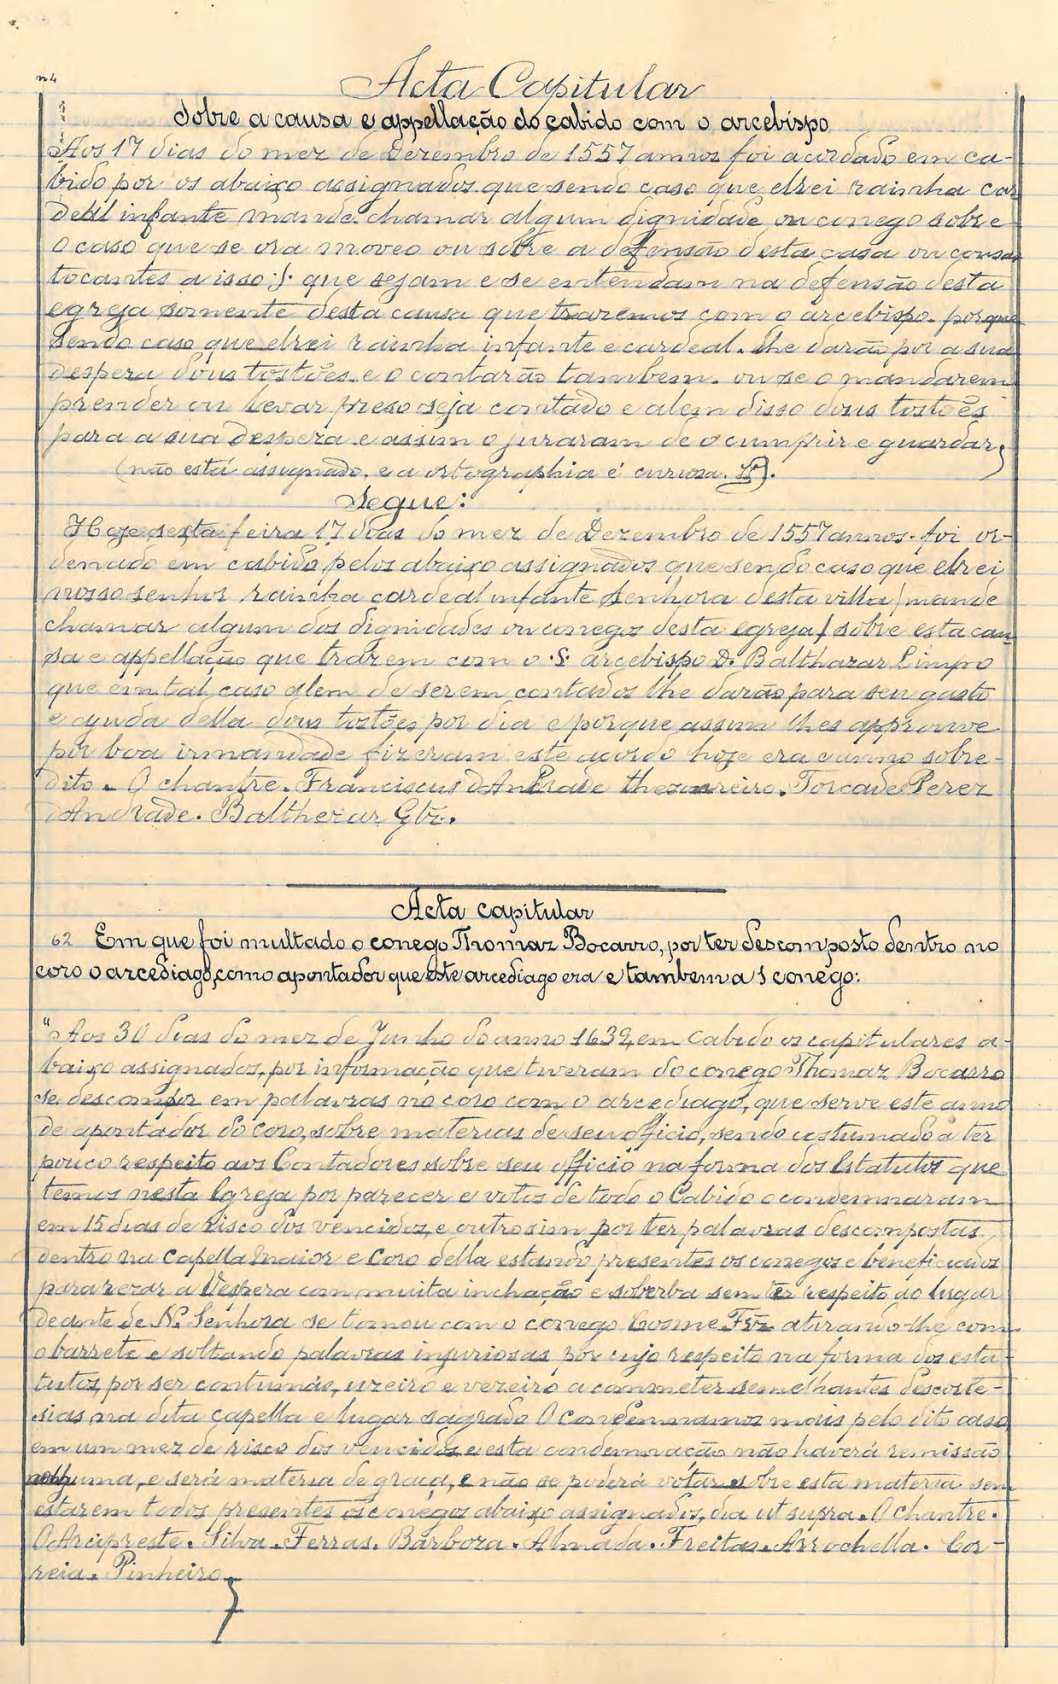 n 4
Acta Capitular
Sobre a causa e appellação do cabido com o arcebispo
Aos 17 dias do mez de Dezembro de 1557 annos foi acordado em ca-
bido por os abaiço assignados que sendo caso que elrei rainha car
deal infante mande chamar algum dignidade ou conego sobre
o caso que se ora moveo ou sobre a defensão desta casa ou cousas
tocantes a isso .f. que sejam e se entendam na defensão desta
egreja somente desta causa que trazemos com o arcebispo. porque
sendo caso que elrei rainha infante e cardeal. lhe darão por a sua
despeza dous tostões. e o contarão tambem. ou se o mandarem
prender ou levar preso seja contado e alem disso dous tostões
para a sua despeza e assim o juraram de o cumprir e guardar;
(não está assignado, e a ortographia é curiosa.
Segue:
Hoje sexta feira 17 dias do mez de Dezembro de 1557 annos. foi or-
denado em cabido pelos abaiço assignados que sendo caso que elrei
nosso senhor rainha cardeal infante senhora desta villa / mande
chamar algum dos dignidades ou conegoz desta egreja / sobre esta cau
sa e appellação que trazem com o .S. arcebispo D. Balthazar Limpo
que em tal caso alem de serem contados lhe darão para seu gasto
e ajuda della dous tostões por dia e porque assim lhes approuve
por boa irmandade fizeram este acordo hoje era e anno sobre-
dito. O chantre. Franciscus d'Andrade thezoureiro. Torcade Perez
d'Andrade. Balthezar Glz.
Acta capitular
62 Em que foi multado o conego Thomaz Bocarro, por ter descomposto dentro no
coro o arcediago, como apontador que este arcediago era e tambem a 1 conego:
"Aos 30 dias do mez de Junho do anno 1639, em Cabido os capitulares a-
baiço assignados, por informação que tiveram do conego Thomaz Bocarro
se descompor em palavras no coro com o arcediago, que serve este anno
de apontador do coro, sobre materias de seu officio, sendo costumado a ter
pouco respeito aos Contadores sobre seu officio na forma dos Estatutos que
temos nesta Egreja por parecer e votos de todo o Cabido o condemnaram
em 15 dias de risco dos vencidos, e outrosim por ter palavras descompostas
dentro na Capella maior e Coro della estando presentes os conegos e beneficiados
para rezar a Vespera com muita inchação e soberba sem ter respeito ao lugar
deante de N.ª Senhora se tomou com o conego Cosme Frz atirando-lhe com
o barrete e soltando palavras injuriosas por cujo respeito na forma dos esta-
tutos, por ser contumás, uzeiro e vezeiro a commeter semelhantes descorte-
sias na dita capella e lugar sagrado O Condemnamos mais pelo dito caso
em um mez de risco dos vencidos e esta condemnação não haverá remissão
nenhuma, e será materia de graça, e não se poderá votar sobre esta materia sem
estarem todos presentes os conegos abaiço assignados, dia ut supra. O chantre.
O Arcipreste. Silva. Ferras. Barboza. Almada. Freitas. Arrochella. Cor-
reia. Pinheiro.